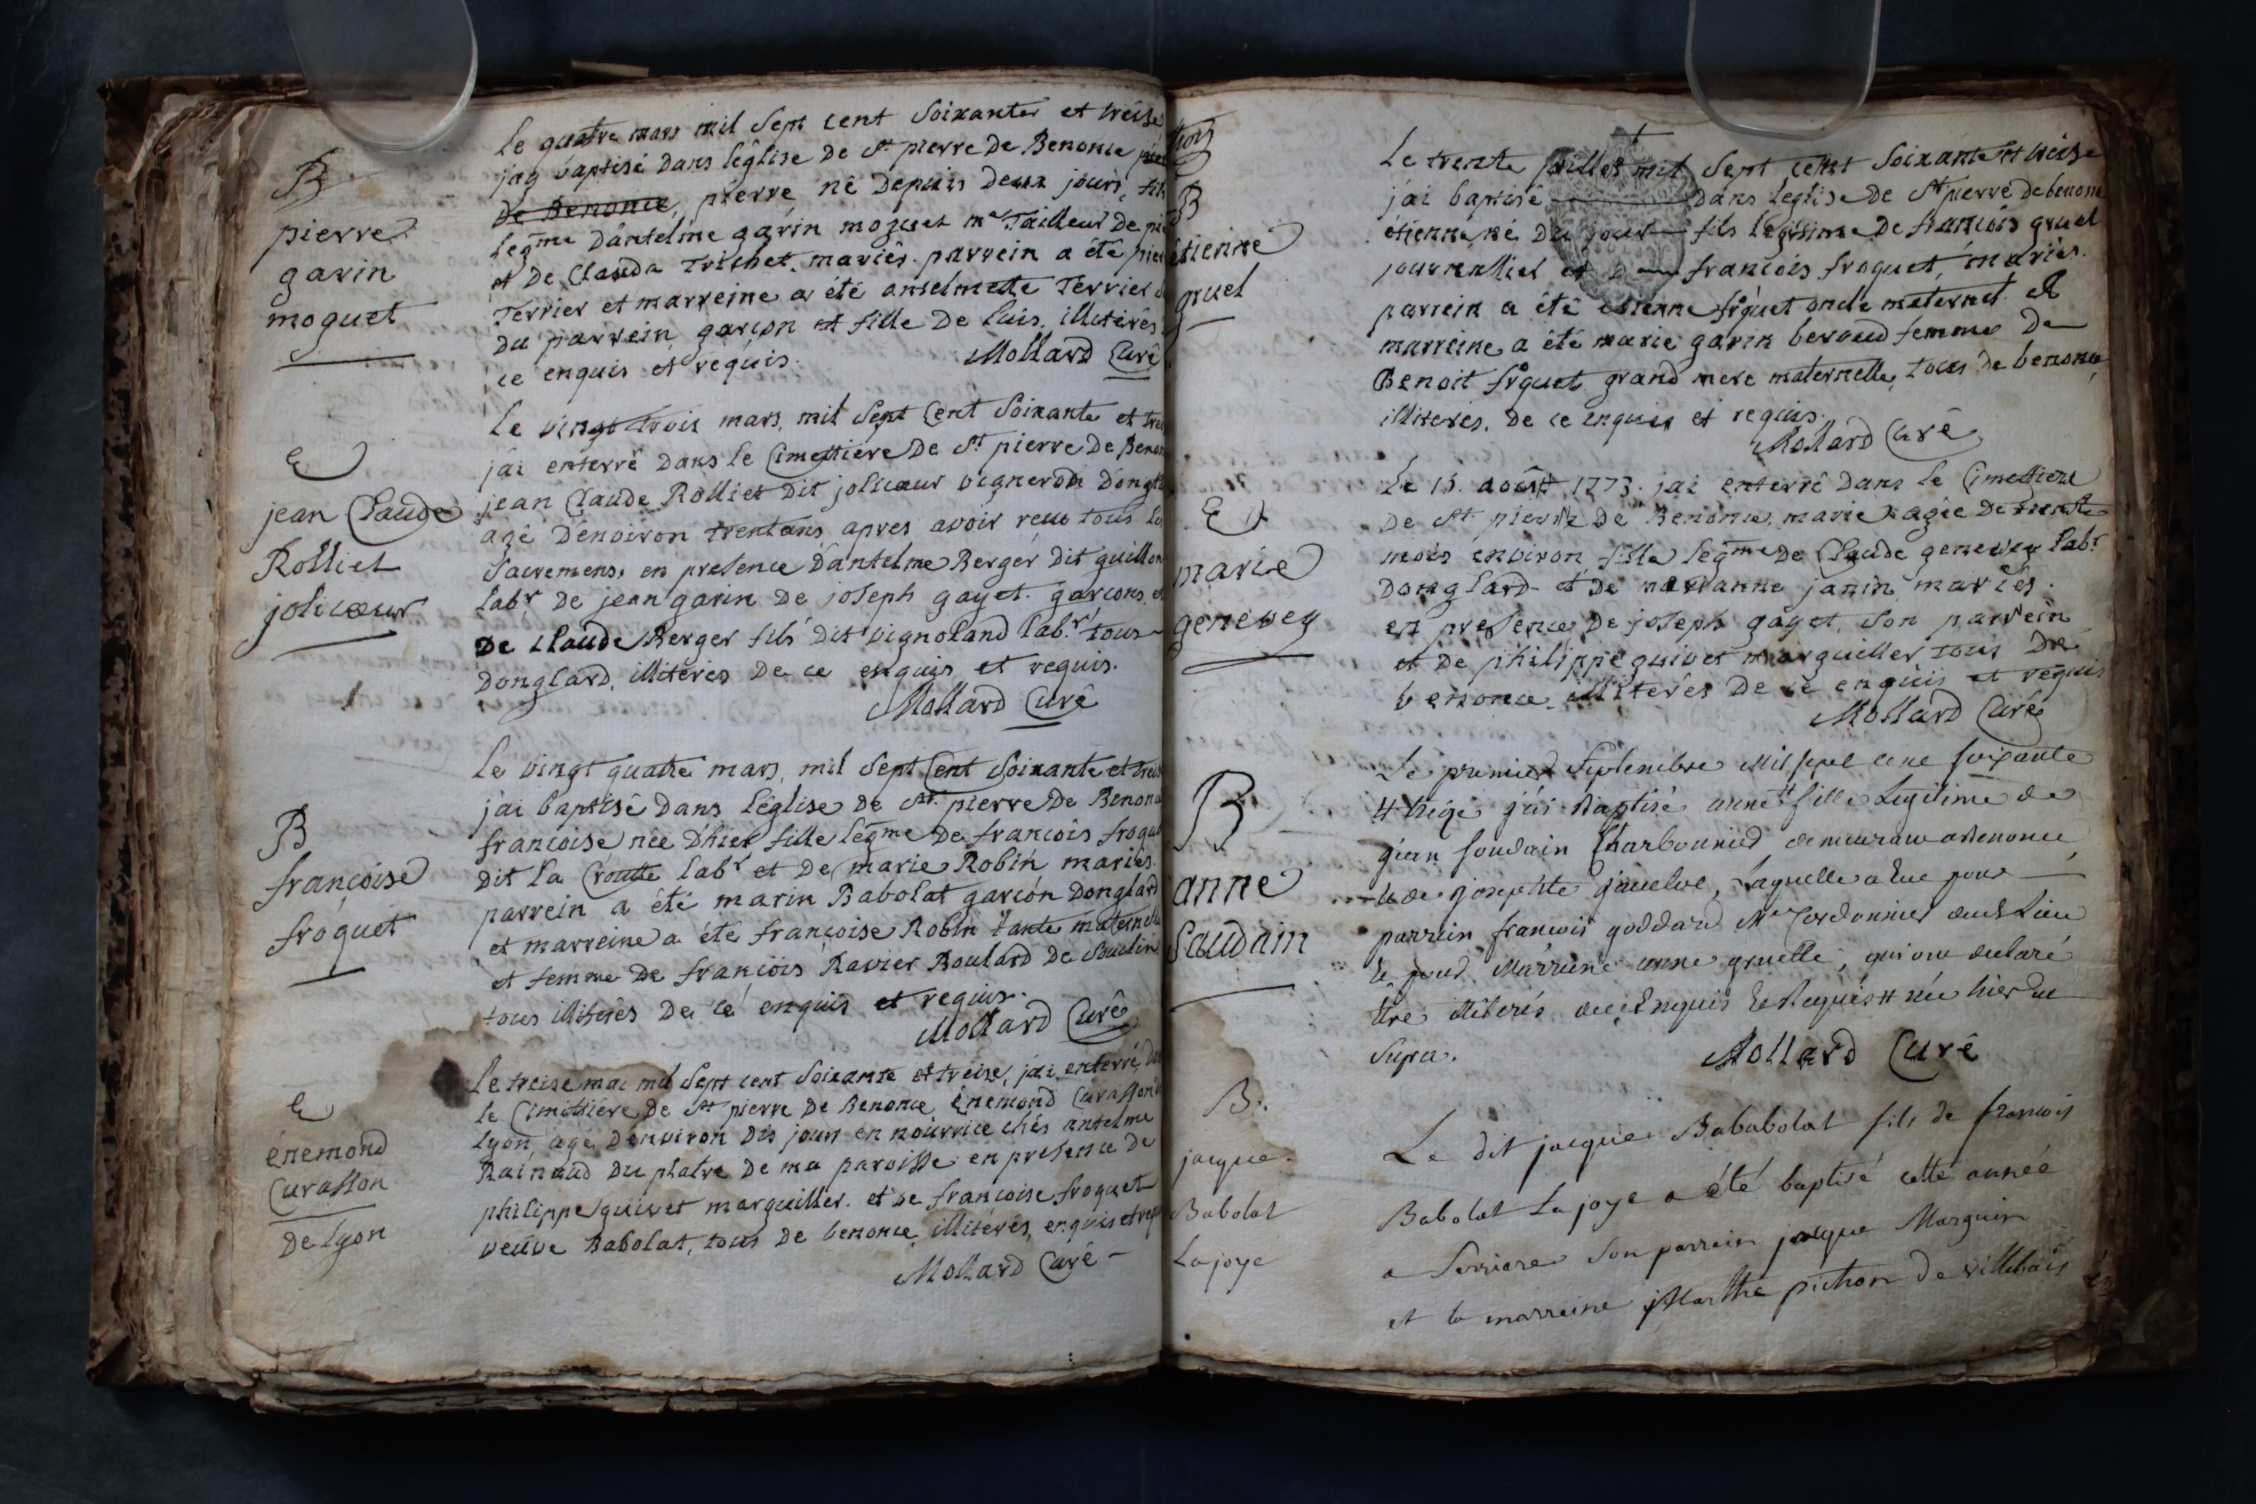 B
pierre
garin
moguet
Le quatre mars mil Sept cent Soixante et treise
jay baptisé dans léglise de St pierre De Benonce
De Benonce, pierre né Depuis deux jours, fils
legme Dantelme garin moguet me Tailleur De
et De Clauda Trichet, mariés. parrein a été
Terrier et marreine a été anselmette Terrier
du parrein garçon et fille De Luis, illiterés
ce enquis et requis.
Mollard Curé
E
jean Claude
Rolliet
jolicœur
Le vingt trois mars, mil Sept Cent Soixante et
j'ai enterré dans le Cimettiére De St pierre De
jean Claude Rolliet Dit jolicœur vigneron
agé D'enoiron trentans, apres avoir recu tous
Sacremens, en presence Dantelme Berger dit
labr De jean garin De joseph gayet. garcons
De Claude Berger fils Dit vignoland labr. tous
Donglard, illiterés de ce enquis et requis.
Mollard Curé
B
françoise
froquet
Le vingt quatre mars, mil Sept Cent Soixante et
j'ai baptisé dans l'église de St pierre De
francoise née D'hier fille legme De francois
Dit la Croutte labr et De marie Robin mariés.
parrein a été marin Babolat garcon Donglard
et marreine a été françoise Robin tante
et femme De francois Ravier Boulard De
tous illiterés De ce enquis et requis.
Mollard Curé
E
énemond
Curasson
De Lyon
Le treise mai mil Sept cent Soixante et treise, j'ai enterré
le Cimittiére De St pierre De Benonce énemond
Lyon agé D'environ Dis jours en nourrice chés antelme
Rainaud Du platre De ma paroisse en presence De
philippe quivet marguillier. et De francoise froquet
veuve Babolat, tous De benonce, illiterés, enquis et
Mollard Curé
B
étienne
gruel
Le trente juillet mil Sept cent Soixante et treise
j'ai baptisé dans leglise De St pierre de benonce
étienne né Du jour fils legitime De francois gruel
journallier et francois froquet, mariés.
parrein a été étienne froquet oncle maternel. et
marreine a été marie garin beroud femme De
Benoit froquet grand mere maternelle, tous De benonce,
illiterés, De ce enquis et requis.
Mollard Curé
E
marie
genevey
Le 15. août 1773. jai enterré dans le Cimettiere
De St pierre De Benonce, marie agée De trente
mois environ fille legme De Claude genevey labr
Donglard et De marianne janin, mariés.
en presence De joseph gayet, Son parrein
et De philippe quivet marguillier tous De
benonce illiterés De ce enquis et requis
Mollard Curé
B
anne
Saudain
Le premier Septembre Mil sept cent soixante
& treize j'ai Baptisé anne # fille Legitime de
jean soudain Charbonnier demeurant a Benonce
& de josephte, Laquelle a Eue pour
parrein francois goddard Me Cordonnier
& pour Marreine anne gruelle, qui ont declaré
Etre illiterés de ce Enquis & Requis # née hier
Supra.
Mollard Curé
B.
jacque
Babolat
Lajoye
Le dit jacque Bababolat fils de francois
Babolat Lajoye a été baptisé cette année
a Serriere Son parrein jacque Marguin
et la marreine Marthe pichon De villebois